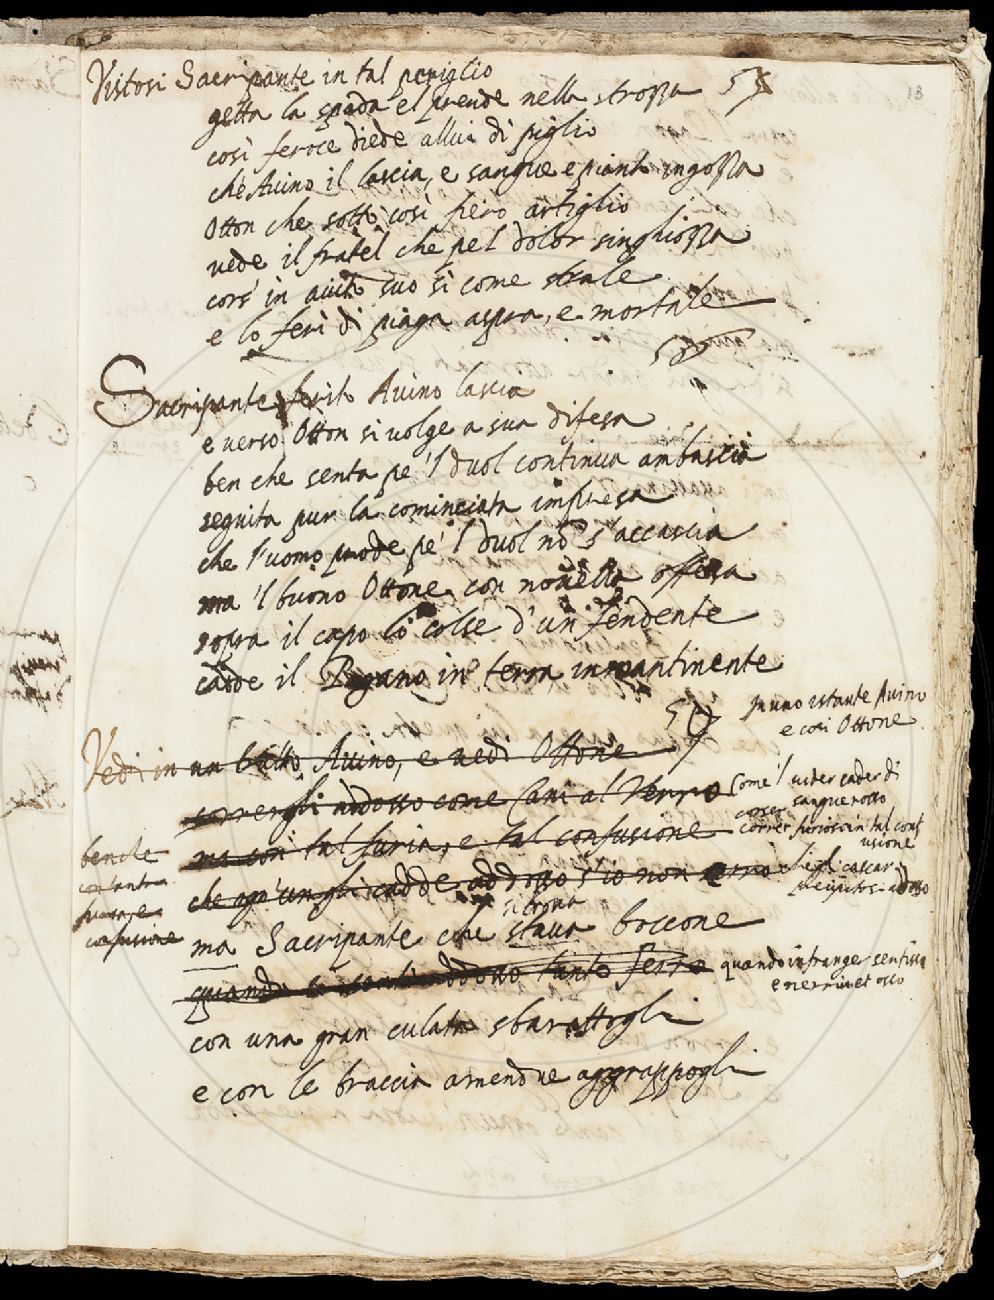 13
Vistosi Sacripante in tal periglio
getta la spada e'l prende nella strozza
così feroce diede allui di piglio
che Avino il lascia, e sangue e pianto ingozza
Otton che sotto così fiero artiglio
vede il fratel che pel dolor singhiozza
cors' in aiuto suo sì come strale
e lo ferì di piaga aspra, e mortale
Sacripante ferito Avino lascia
e verso Otton si volge a sua difesa
ben che senta pe 'l duol continua ambascia
seguita pur la cominciata impresa
che l'uomo prode pe 'l duol nō s'accascia
ma 'l buono Ottone con novella offesa
sopra il capo lo colse d'un fendente
cadde il Pagano in terra inmantinente
59
in uno istante Avino
e così Ottone
Vedi in un batto Avino, e vedi Ottone
corrergli addosso come Cani al Verro
Come 'l vider cader di
sangue rosso
correr furiosi in tal conf
usione
ma con tal furia, e tal confusione
benche
con tanta
furia, e
confusione
che ogn'un gli cadde addosso s'io non erro
ch'egli cascar
precipitosi adosso
si trova
ma Sacripante che stava boccone
quando si sentì addosso tanto ferro
quando infranger sentissi
e nervi et osso
con una gran culata sbarattogli
e con le braccia amendue aggrappogli